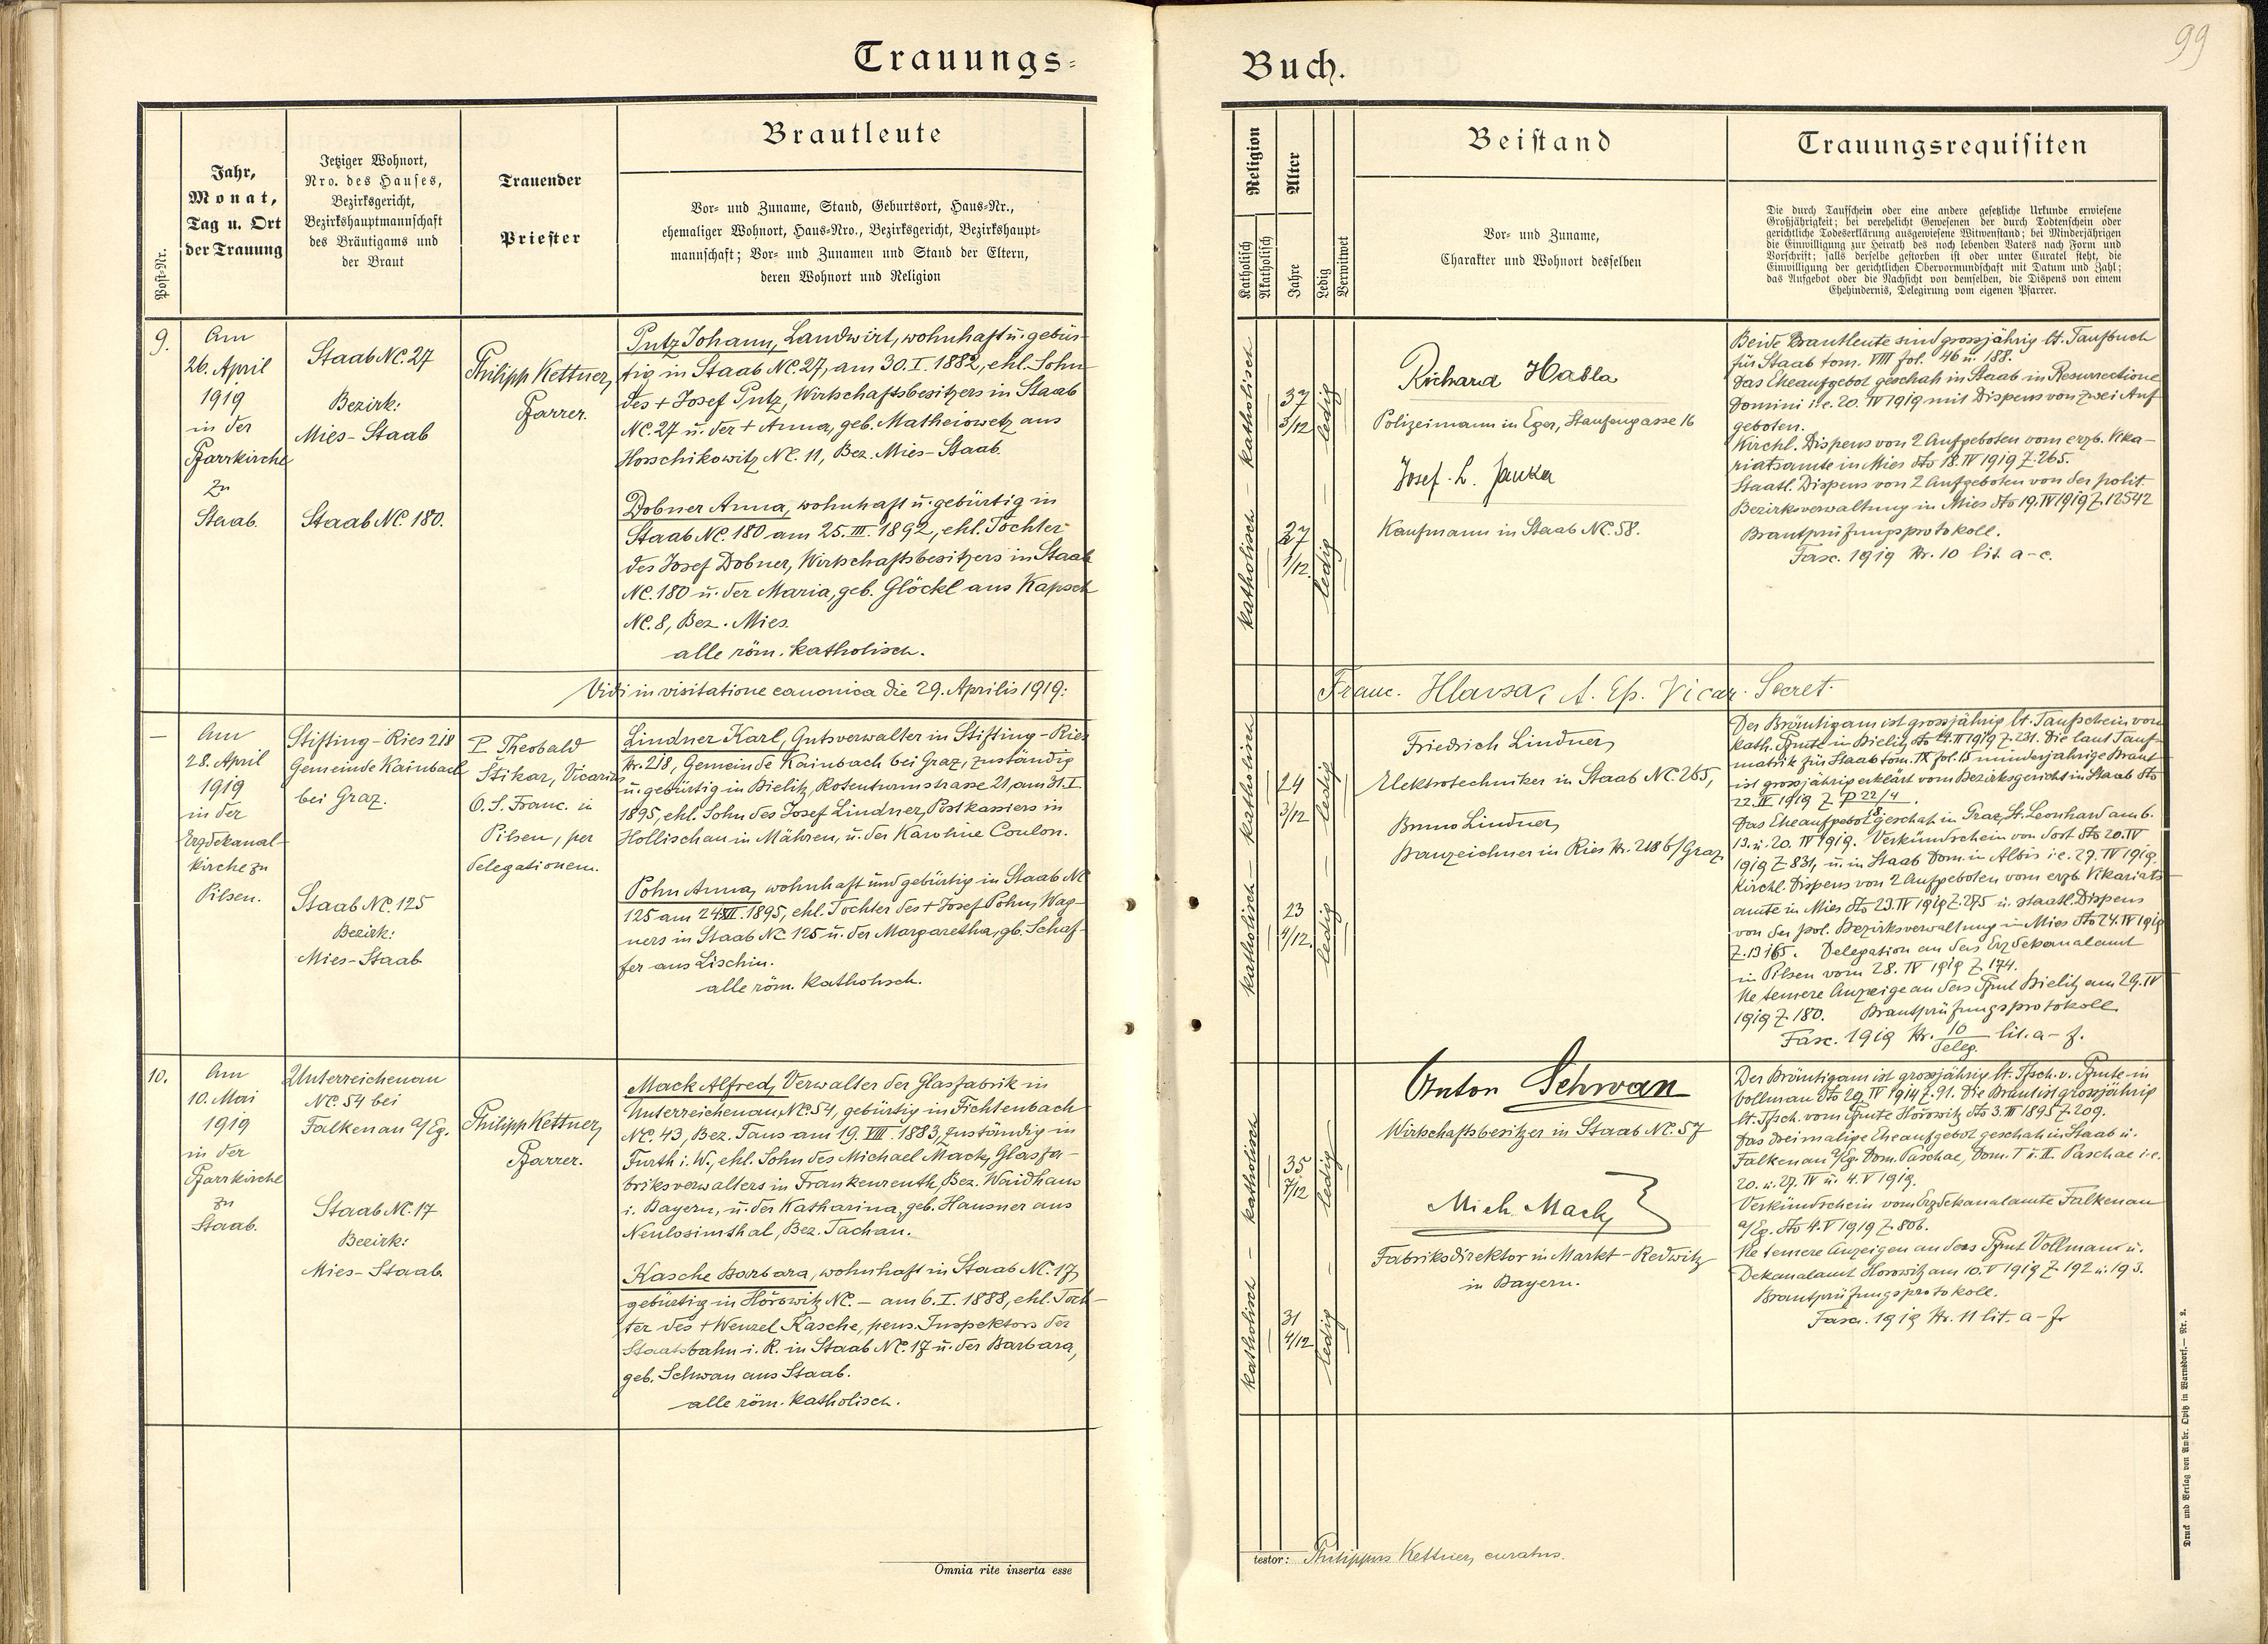 Trauungs-
Post-Nr.
Jahr,
Monat,
Tag u. Ort
der Trauung
Jetziger Wohnort,
Nro. des Hauses,
Bezirksgericht,
Bezirkshauptmannschaft
des Bräutigams und
der Braut
Trauender
Priester
Brautleute
Vor- und Zuname, Stand, Geburtsort, Haus-Nr.,
ehemaliger Wohnort, Haus-Nro., Bezirksgericht, Bezirkshaupt-
mannschaft; Vor- und Zunamen und Stand der Eltern,
deren Wohnort und Religion
9.
Am
26. April
1919
in der
Pfarrkirche
zu
Staab.
Staab NC. 27
Bezirk:
Mies-Staab
Staab NC. 180.
Philipp Kettner,
Pfarrer.
Putz Johann, Landwirt, wohnhaft u. gebür-
tig in Staab NC. 27, am 30. I. 1882, ehl. Sohn
des + Josef Putz, Wirtschaftsbesitzers in Staab
NC. 27 u. der + Anna, geb. Matheiowetz aus
Horschikowitz NC. 11, Bez. Mies-Staab.
Dobner Anna, wohnhaft u. gebürtig in
Staab NC. 180 am 25. III. 1892, ehl. Tochter
des Josef Dobner, Wirtschaftsbesitzers in Staab
NC. 180 u. der Maria, geb. Glöckl aus Kapsch
NC. 8, Bez. Mies.
alle röm. katholisch.
Vidi in visitatione canonica die 29. Aprilis 1919:
—
Am
28. April
1919
in der
Erzdekanal-
kirche zu
Pilsen.
Stifting-Ries 218
Gemeinde Kainbach
bei Graz.
Staab NC. 125
Bezirk:
Mies-Staab
P. Theobald
Štikar, Vicarius
O. S. Franc. in
Pilsen, per
delegationem.
Lindner Karl, Gutsverwalter in Stifting-Ries
Nr. 218, Gemeinde Kainbach bei Graz, zuständig
u. gebürtig in Bielitz, Rosenturmstrasse 21, am 31. I.
1895, ehl. Sohn des Josef Lindner, Postkassiers in
Hollischau in Mähren, u. der Karoline Coulon.
Pohn Anna, wohnhaft und gebürtig in Staab NC
125 am 24. XII. 1895, ehl. Tochter des + Josef Pohn, Wag-
ners in Staab NC 125 u. der Margaretha, gb. Schaf-
fer aus Lischin.
alle röm. katholisch.
10.
Am
10. Mai
1919
in der
Pfarrkirche
zu
Staab.
Unterreichenau
NC. 54 bei
Falkenau a/Eg.
Staab NC. 17
Bezirk:
Mies-Staab.
Philipp Kettner,
Pfarrer.
Mack Alfred, Verwalter der Glasfabrik in
Unterreichenau, NC. 54, gebürtig in Fichtenbach
NC. 43, Bez. Taus am 19. VIII. 1883, zuständig in
Furth i. W., ehl. Sohn des Michael Mack, Glasfa-
briksverwalters in Frankenreuth, Bez. Waidhaus
i. Bayern, u. der Katharina, geb. Hausner aus
Neulosimthal, Bez. Tachau.
Kasche Barbara, wohnhaft in Staab NC. 17,
gebürtig in Hořowitz NC. — am 6. I. 1888, ehl. Toch-
ter des + Wenzel Kasche, pens. Inspektors der
Staatsbahn i. R. in Staab NC. 17 u. der Barbara,
geb. Schwan aus Staab.
alle röm. katholisch.
Omnia rite inserta esse
Buch.
99
Religion
Katholisch
Akatholisch
Alter
Jahre
Ledig
Verwitwet
Beistand
Vor- und Zuname,
Charakter und Wohnort desselben
Trauungsrequisiten
Die durch Taufschein oder eine andere gesetzliche Urkunde erwiesene
Großjährigkeit; bei verehelicht Gewesenen der durch Todtenschein oder
gerichtliche Todeserklärung ausgewiesene Witwenstand; bei Minderjährigen
die Einwilligung zur Heirath des noch lebenden Vaters nach Form und
Vorschrift; falls derselbe gestorben ist oder unter Curatel steht, die
Einwilligung der gerichtlichen Obervormundschaft mit Datum und Zahl;
das Aufgebot oder die Nachsicht von demselben, die Dispens von einem
Ehehindernis, Delegirung vom eigenen Pfarrer.
katholisch — katholisch
37
3/12
ledig
27
1/12.
ledig
Richard Habla
Polizeimann in Eger, Staufengasse 16
Josef L. Janka
Kaufmann in Staab NC. 58.
Beide Brautleute sind grossjährig lt. Taufbuch
für Staab tom. VIII fol. 46 u. 188.
Das Eheaufgebot geschah in Staab in Resurrectione
Domini i. e. 20. IV 1919 mit Dispens von zwei Auf-
geboten.
Kirchl. Dispens von 2 Aufgeboten vom erzb. Vika-
riatsamte in Mies dto 18. IV 1919 Z. 265.
Staatl. Dispens von 2 Aufgeboten von der polit.
Bezirksverwaltung in Mies dto 19. IV 1919 Z. 12542
Brautprüfungsprotokoll.
Fasc. 1919 Nr. 10 lit. a-c.
Franc. Hlavsa, A. Ep. Vicar. Secret.
katholisch — katholisch
24
3/12
ledig
23
4/12.
ledig
Friedrich Lindner,
Elektrotechniker in Staab NC. 265,
Bruno Lindner,
Bauzeichner in Ries Nr. 218 b/Graz
Der Bräutigam ist grossjährig lt. Taufschein vom
kath. Pfmte in Bielitz dto 14. II 1919 Z. 231. Die laut Tauf-
matrik für Staab tom. IX fol. 15 minderjährige Braut
ist grossjährig erklärt vom Bezirksgericht in Staab dto
22. IV. 1919 Z P 22/4
8.
Das Eheaufgebot geschah in Graz, St. Leonhard am 6.
13. u. 20. IV 1919. Verkündschein von dort dto 20. IV
1919 Z 831, u. in Staab Dom. in Albis i. e. 27. IV 1919.
Kirchl. Dispens von 2 Aufgeboten vom erzb. Vikariats-
amte in Mies dto 23. IV 1919 Z. 275 u. staatl. Dispens
von der pol. Bezirksverwaltung in Mies dto 24. IV 1919
Z. 13165. Delegation an das Erzdekanalamt
in Pilsen vom 28. IV 1919 Z 174.
Ne temere Anzeige an das Pfmt Bielitz am 29. IV
1919 Z. 180. Brautprüfungsprotokoll
Fasc. 1919 Nr. 10/deleg. lit. a-f.
katholisch — katholisch
35
7/12
ledig
31
4/12
ledig
Anton Schwan
Wirtschaftsbesitzer in Staab NC. 57
Mich. Mack,
Fabriksdirektor in Markt-Redwitz
in Bayern.
Der Bräutigam ist grossjährig lt. Tfsch. v. Pfmte in
Vollmau dto 29. IV 1914 Z. 91. Die Braut ist grossjährig
lt. Tfsch. vom Pfmte Hořowitz dto 3. III 1895 Z. 209.
Das dreimalige Eheaufgebot geschah in Staab u.
Falkenau a/Eg. Dom. Paschae, Dom. I u. II. Paschae i. e.
20. u. 27. IV u. 4. V 1919.
Verkündschein vom Erzdekanalamte Falkenau
a/Eg. dto 4. V 1919 Z. 806.
Ne temere Anzeigen an das Pfmt Vollmau u.
Dekanalamt Horowitz am 10. V 1919 Z 192 u. 193.
Brautprüfungsprotokoll.
Fasc. 1919 Nr. 11 lit. a-f.
testor: Philippus Kettner, curatus.
Druck und Verlag von Ambr. Opitz in Warnsdorf.— Nr. 2.